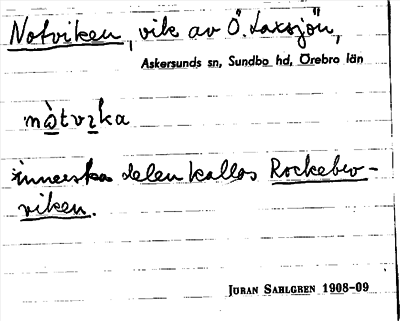 Notviken, vik av Ö. Laxsjön,
Askersunds sn, Sundbo hd, Örebro län
nòtvıka
innersta delen kallas Rockebro-
viken.
JURAN SAHLGREN 1908-09